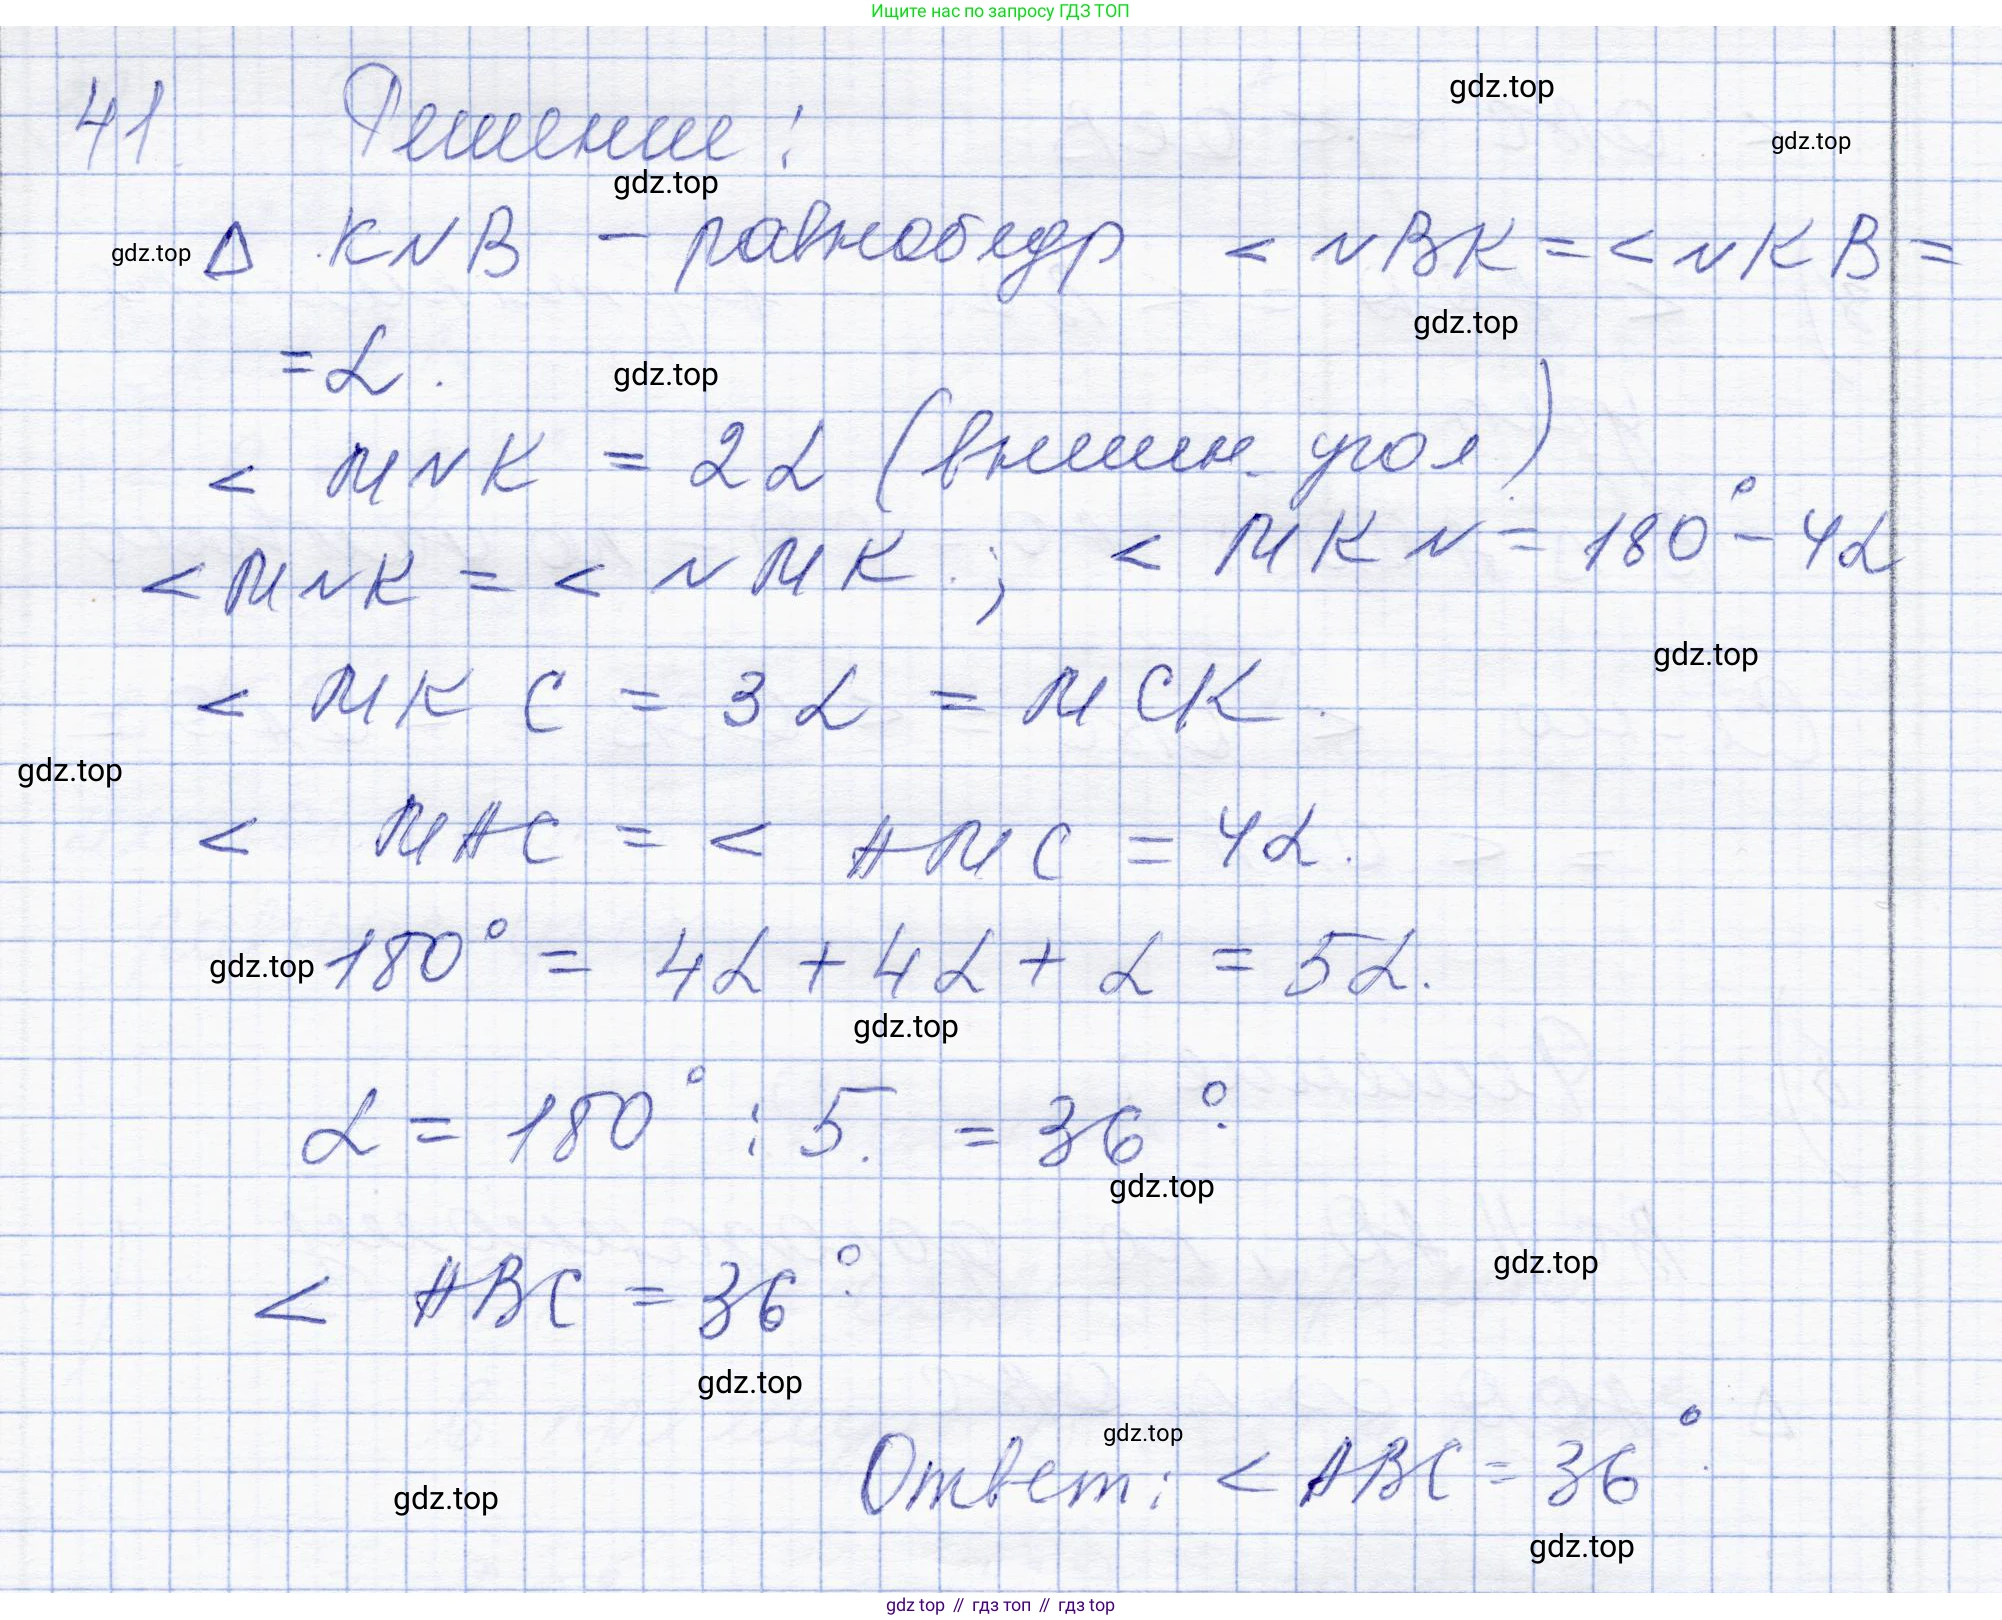 Ищите нас по запросу ГДЗ ТОП
41. Решение:
gdz.top
gdz.top
gdz.top
gdz.top
Δ KNB – равнобедр < NBK = < NKB =
gdz.top
= α.
gdz.top
< MNK = 2α (внешн. угол)
< MNK = < NMK ; < MKN = 180° - 4α
gdz.top
< MKC = 3α = MCK.
gdz.top
< MAC = < AMC = 4α.
gdz.top
180° = 4α + 4α + α = 5α.
gdz.top
α = 180° : 5. = 36°.
gdz.top
gdz.top
< ABC = 36°.
gdz.top
gdz.top
Ответ: < ABC = 36°.
gdz.top
gdz.top
gdz top // гдз топ // гдз top